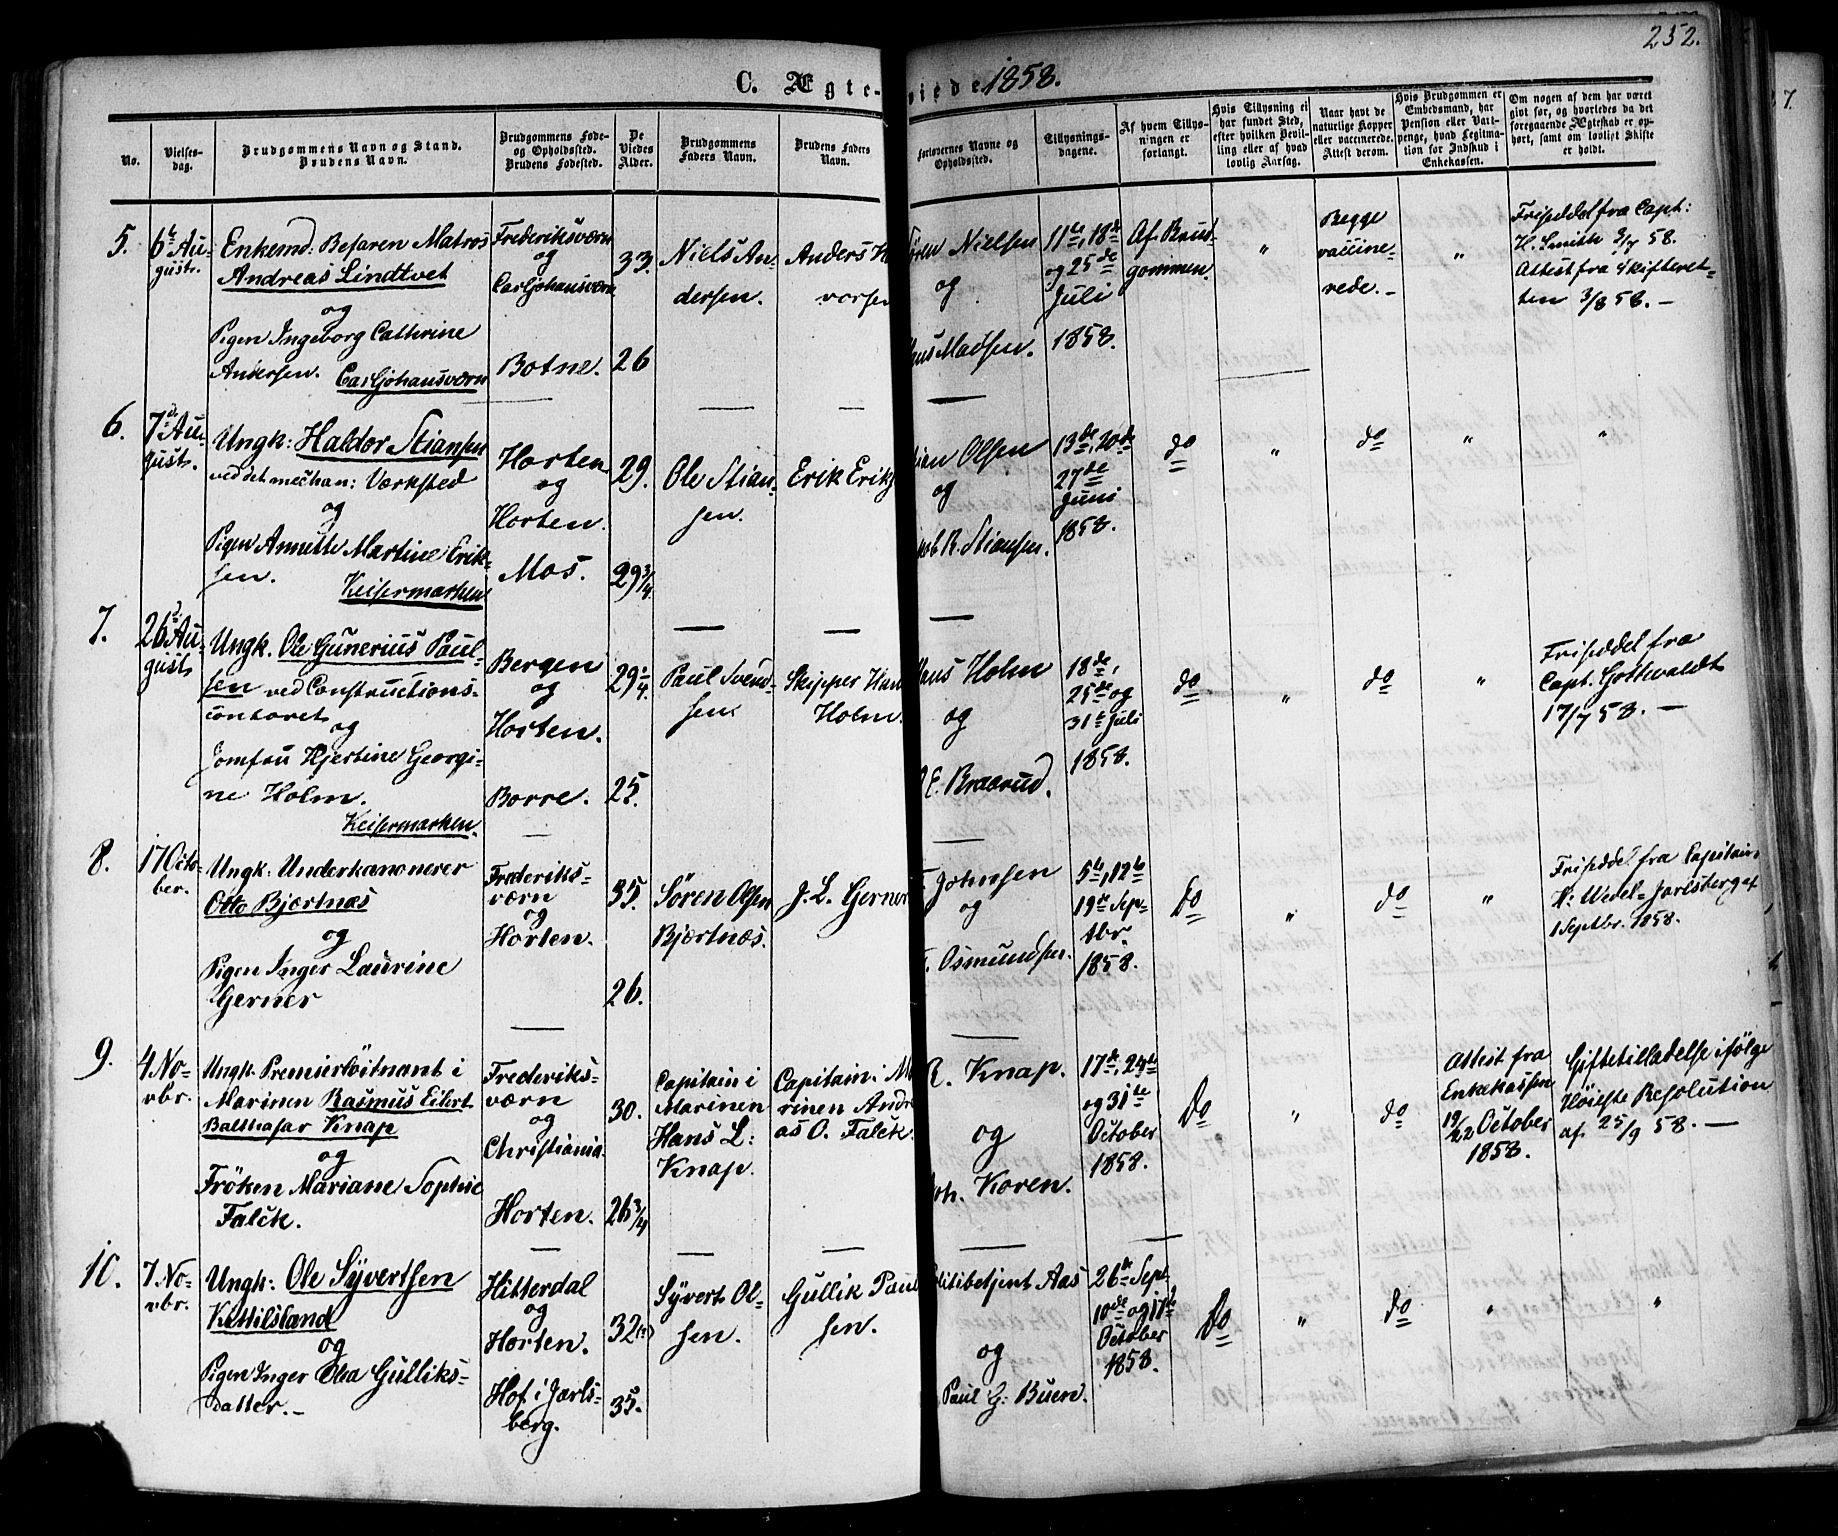 252.
C. Ægte-viede 1858.
No.
Vielses-
dag.
Brudgommens Navn og Stand.
Brudens Navn.
Brudgommens Føde-
og Opholdssted.
Brudens Fødested.
De
Viedes
Alder.
Brudgommens
Faders Navn.
Brudens Faders
Navn.
Forlovernes Navne og
Opholdssted.
Tillysnings-
dagene.
Af hvem Tillys-
ningen er
forlangt.
Hvis Tillysning ei
har fundet Sted,
efter hvilken Bevil-
ling eller af hvad
lovlig Aarsag.
Naar havt de
naturlige Kopper
eller vaccinerede.
Attest derom.
Hvis Brudgommen er
Embedsmand, har
Pension eller Vart-
penge, hvad Legitima-
tion for Indskud i
Enkekassen.
Om nogen af dem har været
gift før, og hvorledes da det
foregaaende Ægteskab er op-
hørt, samt om lovligt Skifte
er holdt.
5.
6te Au-
gustr.
Enkemd: Befaren Matros
Andreas Lindtvet
og
Pigen Ingeborg Cathrine
Andersen. Carljohansværn
Frederiksværn
og
Carljohansværn
Botne.
33.
26
Niels An-
dersen.
Anders H
vorsen
Søren Nielsen
og
Madsen.
11te, 18de
og 25de
Juli
1858.
Af Brud-
gommen.
"
Begge
vaccine-
rede. -
"
Friseddel fra Capt:
H. Smith 3/7 58.
Attest fra Skifteret-
ten 3/8 58. -
6.
7de Au-
gust.
Ungk: Haldor Stiansen
ved det mechan: Værksted
og
Pigen Annette Martine Erik-
sen.
Keisermarken
Horten
og
Horten.
Mos.
29.
29 3/4.
Ole Stian-
sen.
Erik Eriks
Olsen
og
R. Stiansen.
13de, 20de
27de
Juni
1858.
do
"
do
"
"
7.
26de Au-
gust
Ungk. Ole Gunerius Paul-
sen ved Constructions-
contoret
og
Jomfru Hjertine Georgi-
ne Holm.
Keisermarken.
Bergen
og
Horten.
Borre.
29 1/4.
25.
Paul Svend-
sen.
Skipper Han
Holm.
Holm
og
E. Braarud.
18de,
25de og
31te Juli
1858.
do
"
do
"
Friseddel fra
Capt. Gottwaldt
17/7 58. -
8.
17 Octo-
ber.
Ungk: Underkanonerer
Otto Bjertnæs
og
Pigen Inger Laurine
Gerner
Frederiks-
værn
og
Horten.
35.
26.
Søren Olsen
Bjertnæs.
J. L. Gerner
Johnsen
og
Osmundsen.
5te, 12te
19de Sep-
tbr.
1858.
do
"
do
"
Friseddel fra Capitain
H: Wedel-Jarlsberg af
1 Septbr. 1858.
9.
4 No-
vbr.
Ungk. Premierløitnant i
Marinen Rasmus Eilert
Balthasar Knap
og
Frøken Mariane Sophie
Falck.
Frederiks-
værn
og
Christiania.
Horten.
30.
26 3/4
Capitain i
Marinen
Hans L:
Knap.
Capitain i Ma
rinen Andre
as O. Falck.
R. Knap.
og
Joh. Koren.
17de, 24de
og 31te
October
1858.
Do
"
do
Attest fra
Enkekassen
19/22 October
1858.
Giftetilladelse ifølge
Høieste Resolution
af 25/9 58. -
10.
7 No-
vbr.
Ungk: Ole Syvertsen
Kittilsland
og
Pigen Inger Olea Gulliks-
datter. -
Hitterdal
og
Horten.
Hof i Jarls-
berg.
32
35.
Syvert Ol-
sen.
Gullik Paul
sen.
Politibetjent Aas
og
Paul G. Buen.
26de Sept
10de og 17de
October
1858.
Do
"
do
"
"